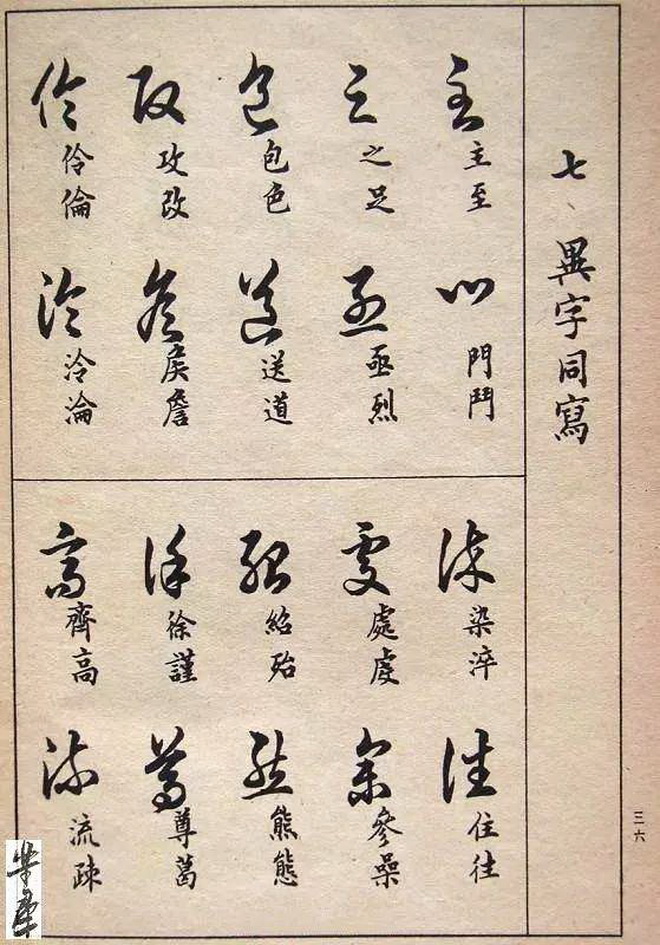 七、異字同寫
主至
之足
包色
攻改
伶倫
門鬥
亟烈
送道
侯詹
泠淪
染淬
處虔
紹殆
徐謹
齊高
住往
參喿
熊態
尊葛
流疎
三六